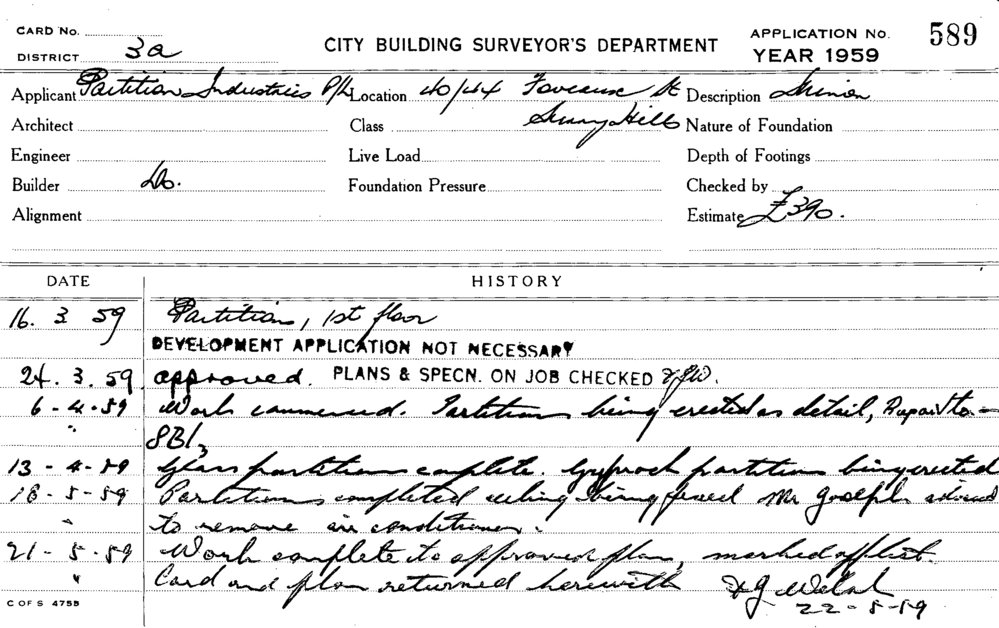 CARD No.
DISTRICT 3a
CITY BUILDING SURVEYOR'S DEPARTMENT
APPLICATION No. 589
YEAR 1959
Applicant Partition Industries P/L Location 40/44 Foveaux St Description Minor
Architect Class Surry Hills Nature of Foundation
Engineer Live Load Depth of Footings
Builder Do. Foundation Pressure Checked by
Alignment Estimate £390.
DATE HISTORY
16. 3 59 Partitions, 1st floor
DEVELOPMENT APPLICATION NOT NECESSARY
24. 3. 59. approved. PLANS & SPECN. ON JOB CHECKED
6-4-59 Work commenced. Partitions being erected as detail,
" SBI
13-4-59 Glass partitions complete. Gyprock partitions being erected
18-5-59 Partitions completed ceiling being fixed Mr advised
" to remove air conditioner.
21-5-59 Work complete to approved plan, marked off list.
" Card and plan returned herewith
22-5-59
C OF S 475B